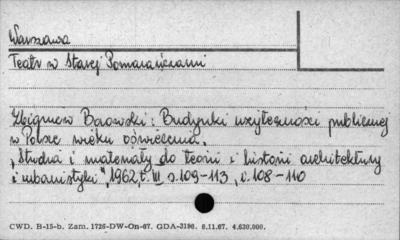 Warszawa
Teatr w Starej Pomarańczarni
Zbigniew Borowski: Budynki użyteczności publicznej
w Polsce wieku oświecenia.
"Studia i materiały do teorii i historii architektury
i urbanistyki", 1962, t. III s. 109-113, il. 108-110
CWD. B-15-b. Zam. 1726-DW-On-67. GDA-3196. 8.11.67. 4.630.000.